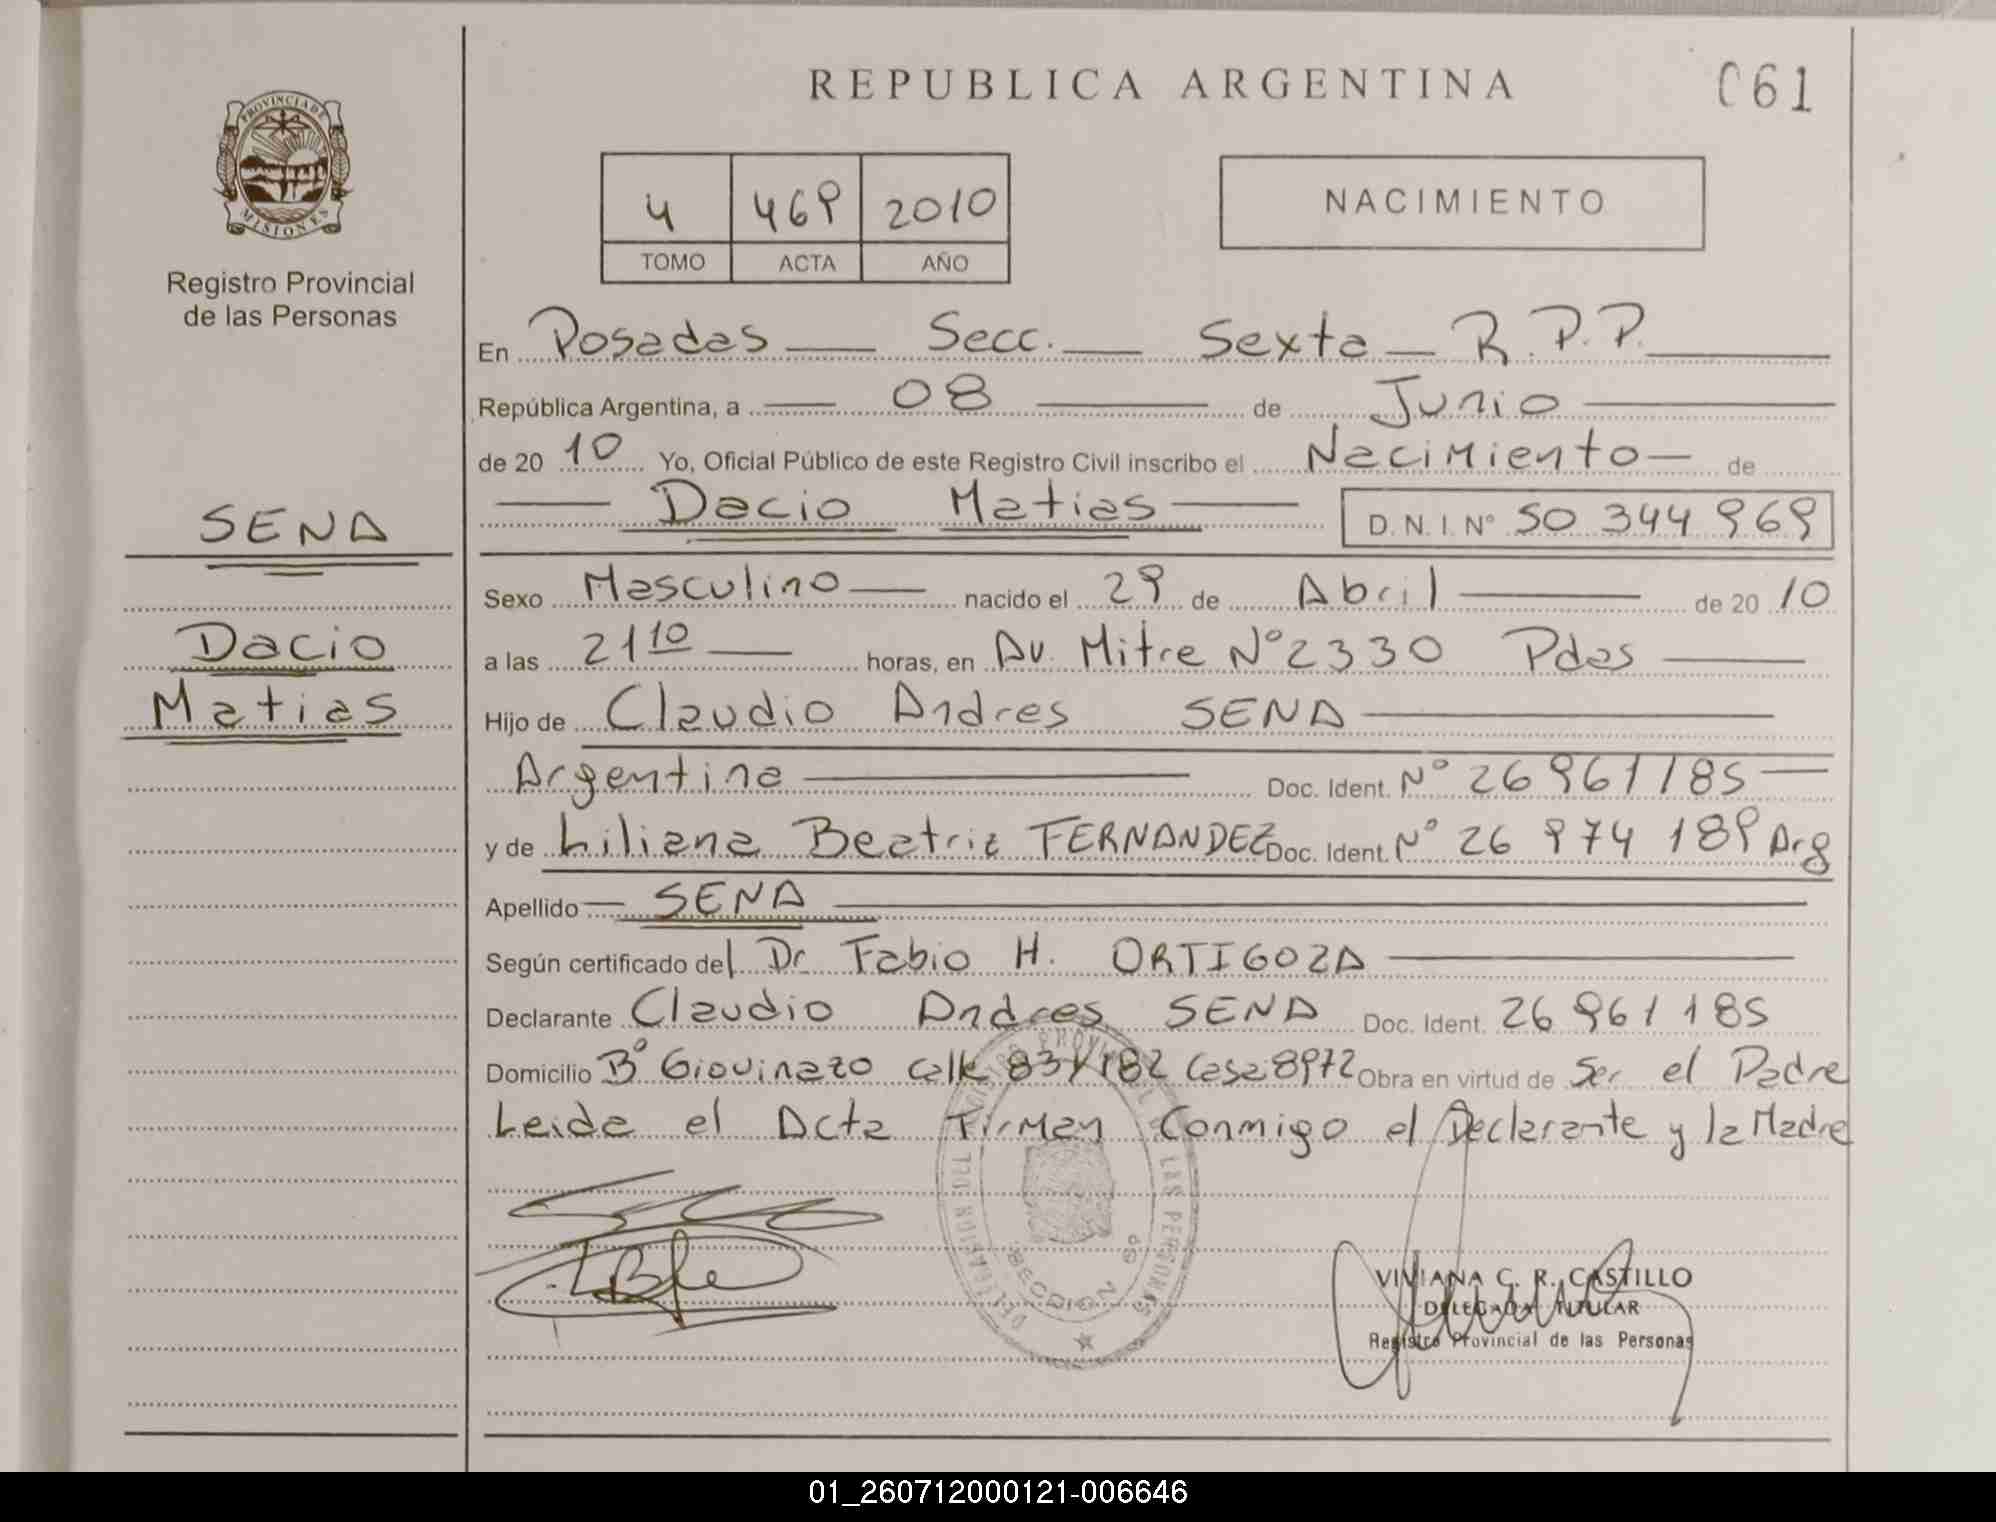 REPUBLICA ARGENTINA
061
PROVINCIA DE
MISIONES
Registro Provincial
de las Personas
4 469 2010
TOMO ACTA AÑO
NACIMIENTO
En Posadas Secc. Sexta R.P.P.
República Argentina, a 08 de Junio
de 20 10 Yo, Oficial Público de este Registro Civil inscribo el Nacimiento de
Dacio Matias D.N.I. Nº 50 344 969
SENA
Dacio
Matias
Sexo Masculino nacido el 29 de Abril de 20 10
a las 21 10 horas, en Av. Mitre Nº 2330 Pdas
Hijo de Claudio Andres SENA
Argentina Doc. Ident. Nº 26 961 185
y de Liliana Beatriz FERNANDEZ Doc. Ident. Nº 26 974 189 Arg
Apellido SENA
Según certificado del Dr Fabio H. ORTIGOZA
Declarante Claudio Andres SENA Doc. Ident. 26 961 185
Domicilio Bº Giovinazo calle 83/182 Casa 8972 Obra en virtud de Ser el Padre
Leida el Acta Firman Conmigo el Declarante y la Madre
DELEGACION DEL REGISTRO PROVINCIAL DE LAS PERSONAS
SECCION 6º
VIVIANA C. R. CASTILLO
DELEGADA TITULAR
Registro Provincial de las Personas
01_260712000121-006646